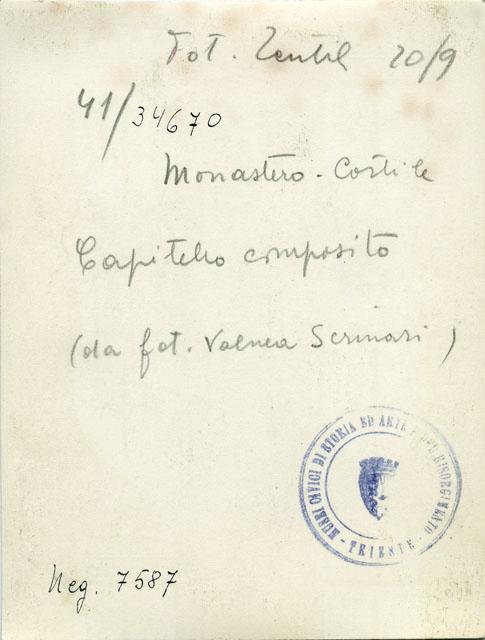 Fot. Zentil 20/9
41/34670
Monastero - Cortile
Capitello composito
(da fot. Valnea Scrinari)
MUSEI CIVICI DI STORIA ED ARTE E DEL RISORGIMENTO
- TRIESTE -
Neg. 7587